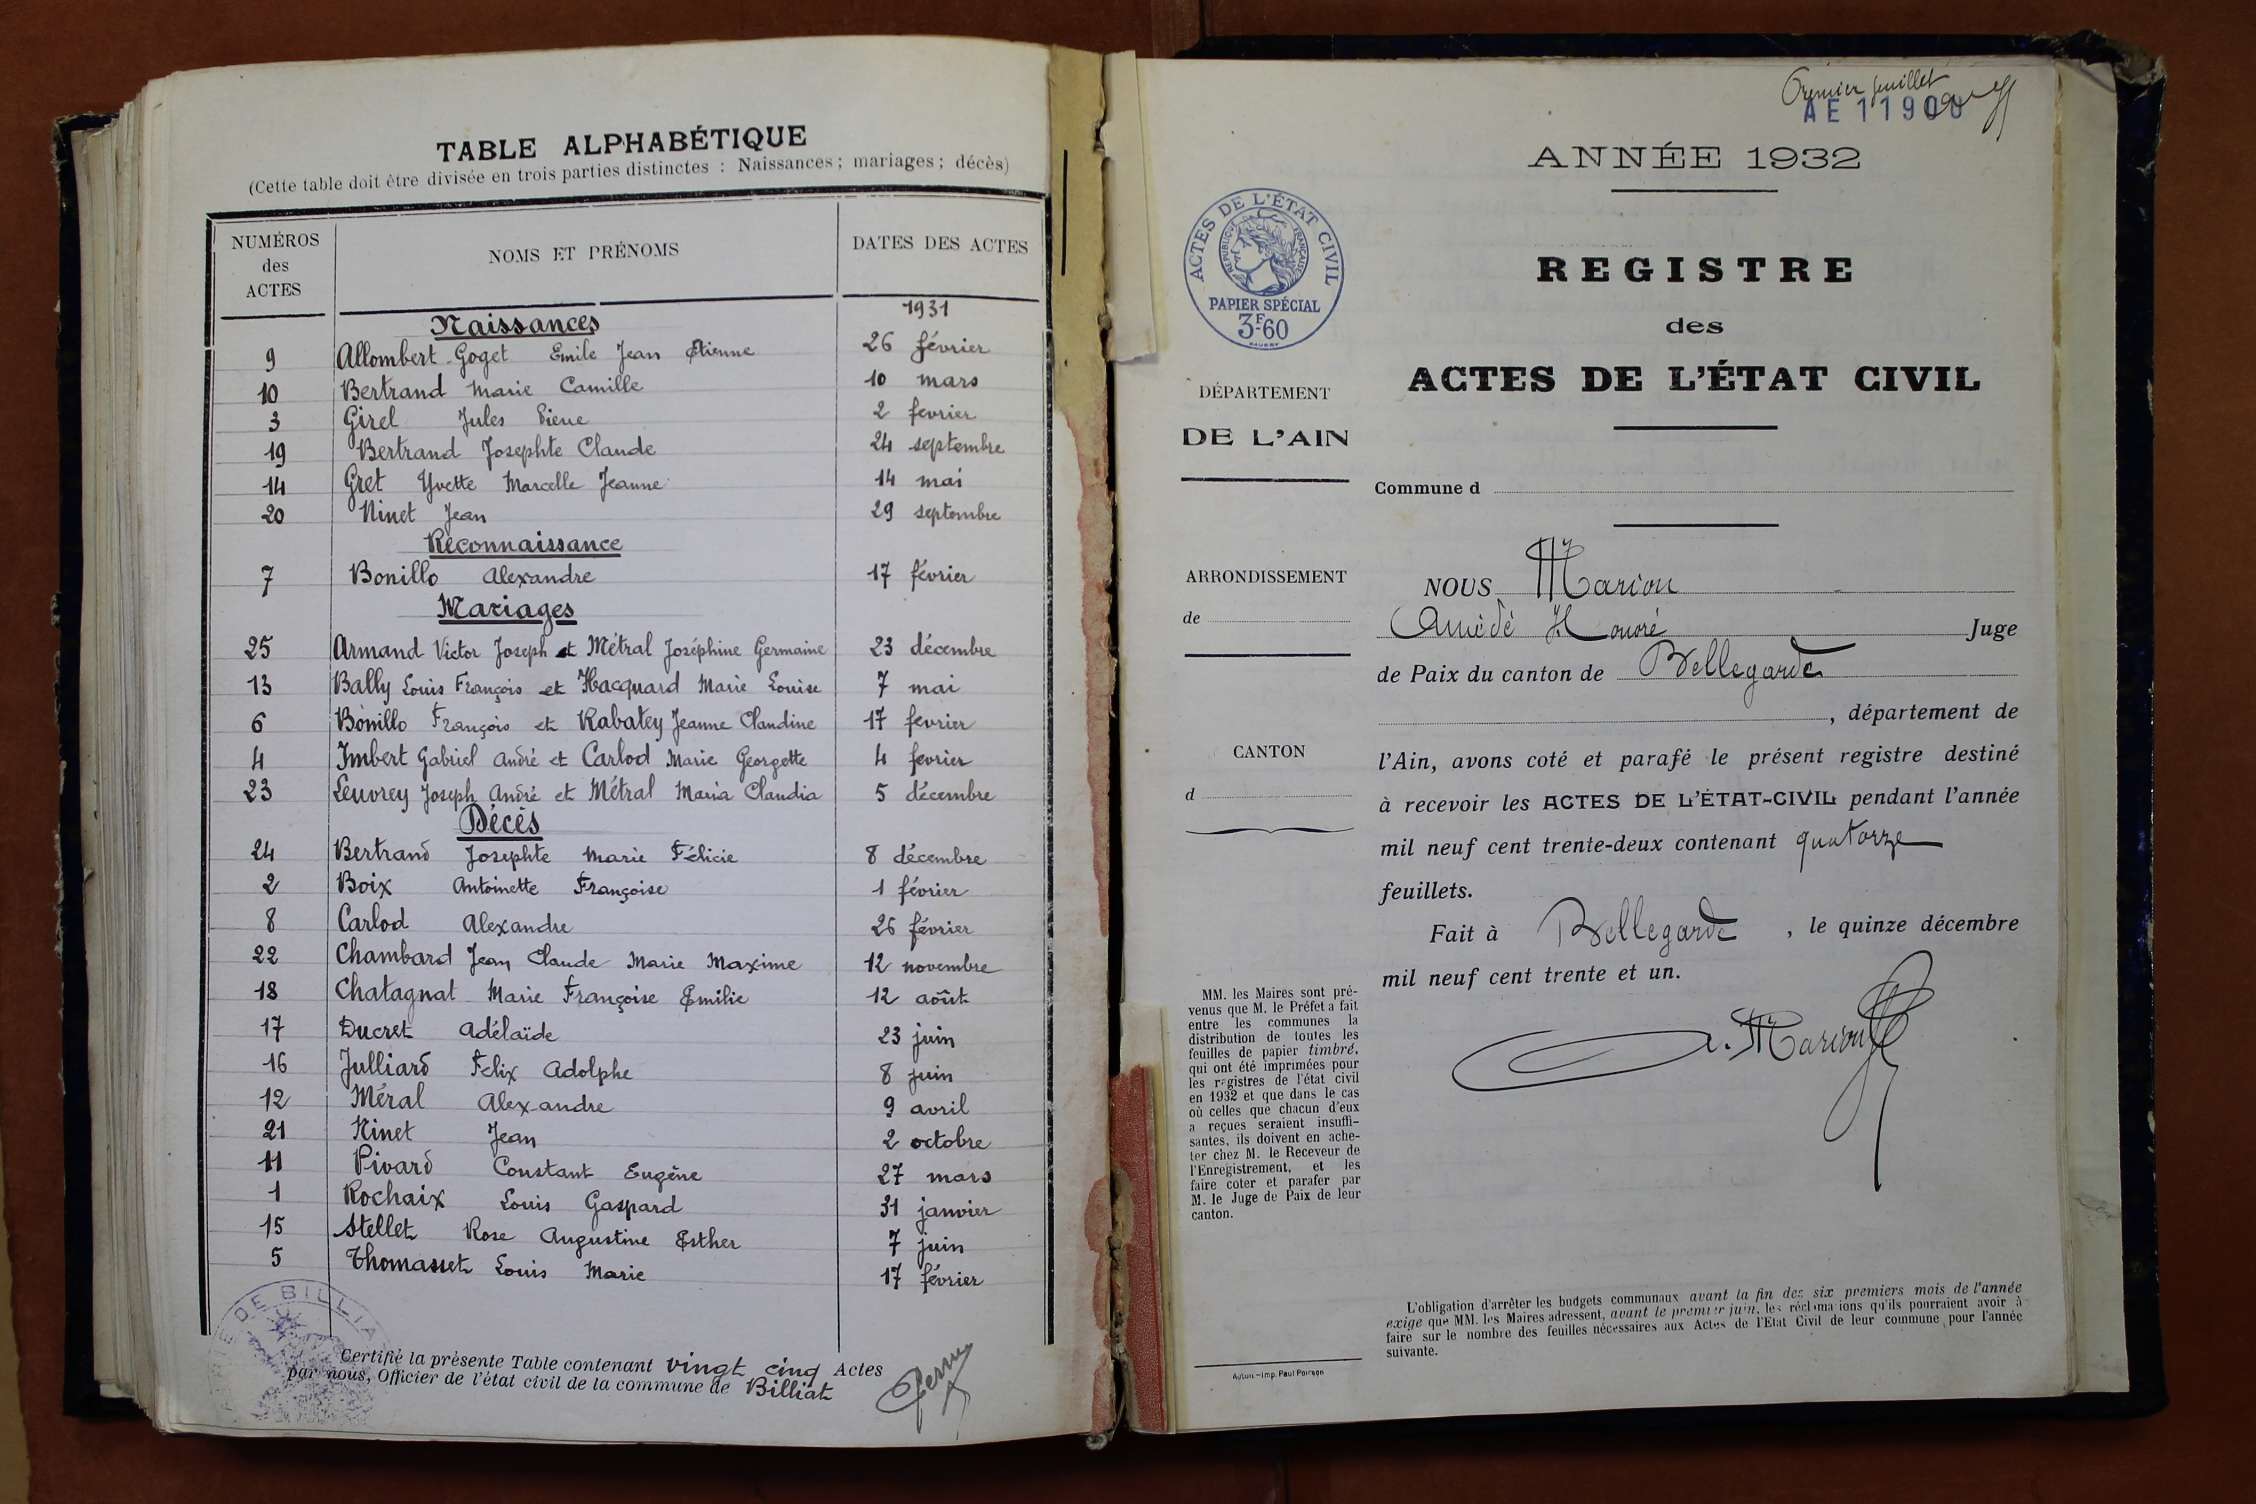 TABLE ALPHABÉTIQUE
(Cette table doit être divisée en trois parties distinctes : Naissances ; mariages ; décès)
NUMÉROS des ACTES NOMS ET PRÉNOMS DATES DES ACTES
1931
Naissances
9 Allombert-Goget Emile Jean Etienne 26 février
10 Bertrand Marie Camille 10 mars
3 Girel Jules Pierre 2 fevrier
19 Bertrand Josephte Claude 24 septembre
14 Gret Yvette Marcelle Jeanne 14 mai
20 Ninet Jean 29 septembre
Reconnaissance
7 Bonillo Alexandre 17 février
Mariages
25 Armand Victor Joseph et Métral Joséphine Germaine 23 décembre
13 Bally Louis François et Hacquard Marie Louise 7 mai
6 Bonillo François et Rabatey Jeanne Claudine 17 fevrier
4 Imbert Gabriel André et Carlod Marie Georgette 4 fevrier
23 Leuvrey Joseph André et Métral Maria Claudia 5 décembre
Décès
24 Bertrand Josephte Marie Félicie 8 décembre
2 Boix Antoinette Françoise 1 février
8 Carlod Alexandre 26 février
22 Chambard Jean Claude Marie Maxime 12 novembre
18 Chatagnat Marie Françoise Emilie 12 août
17 Ducret Adélaïde 23 juin
16 Julliard Felix Adolphe 8 juin
12 Méral Alexandre 9 avril
21 Ninet Jean 2 octobre
11 Pivard Constant Eugène 27 mars
1 Rochaix Louis Gaspard 31 janvier
15 Stellet Rose Augustine Esther 7 juin
5 Thomasset Louis Marie 17 février
DE BILLIA
Certifié la présente Table contenant vingt cinq Actes
par nous, Officier de l'état civil de la commune de Billiat
Premier feuillet
AE 11900
ANNÉE 1932
ACTES DE L'ÉTAT CIVIL
RÉPUBLIQUE FRANÇAISE
PAPIER SPÉCIAL
3F60
REGISTRE
des
ACTES DE L'ÉTAT CIVIL
DÉPARTEMENT
DE L'AIN
Commune d
ARRONDISSEMENT
de
CANTON
d
NOUS Marion
Amédé Honoré Juge
de Paix du canton de Bellegarde
, département de
l'Ain, avons coté et parafé le présent registre destiné
à recevoir les ACTES DE L'ÉTAT-CIVIL pendant l'année
mil neuf cent trente-deux contenant quatorze
feuillets.
Fait à Bellegarde , le quinze décembre
mil neuf cent trente et un.
A. Marion
MM. les Maires sont pré-
venus que M. le Préfet a fait
entre les communes la
distribution de toutes les
feuilles de papier timbré,
qui ont été imprimées pour
les registres de l'état civil
en 1932 et que dans le cas
où celles que chacun d'eux
a reçues seraient insuffi-
santes, ils doivent en ache-
ter chez M. le Receveur de
l'Enregistrement, et les
faire coter et parafer par
M. le Juge de Paix de leur
canton.
L'obligation d'arrêter les budgets communaux avant la fin des six premiers mois de l'année
exige que MM. les Maires adressent, avant le premier juin, les réclamations qu'ils pourraient avoir à
faire sur le nombre des feuilles nécessaires aux Actes de l'Etat Civil de leur commune pour l'année
suivante.
Autun.—Imp. Paul Poirson